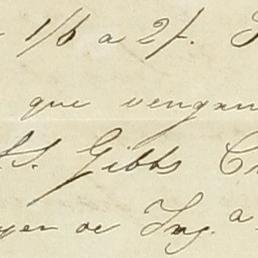 1/6 a 2/.
que vengan
SS. Gibbs C
yer de Ing. a